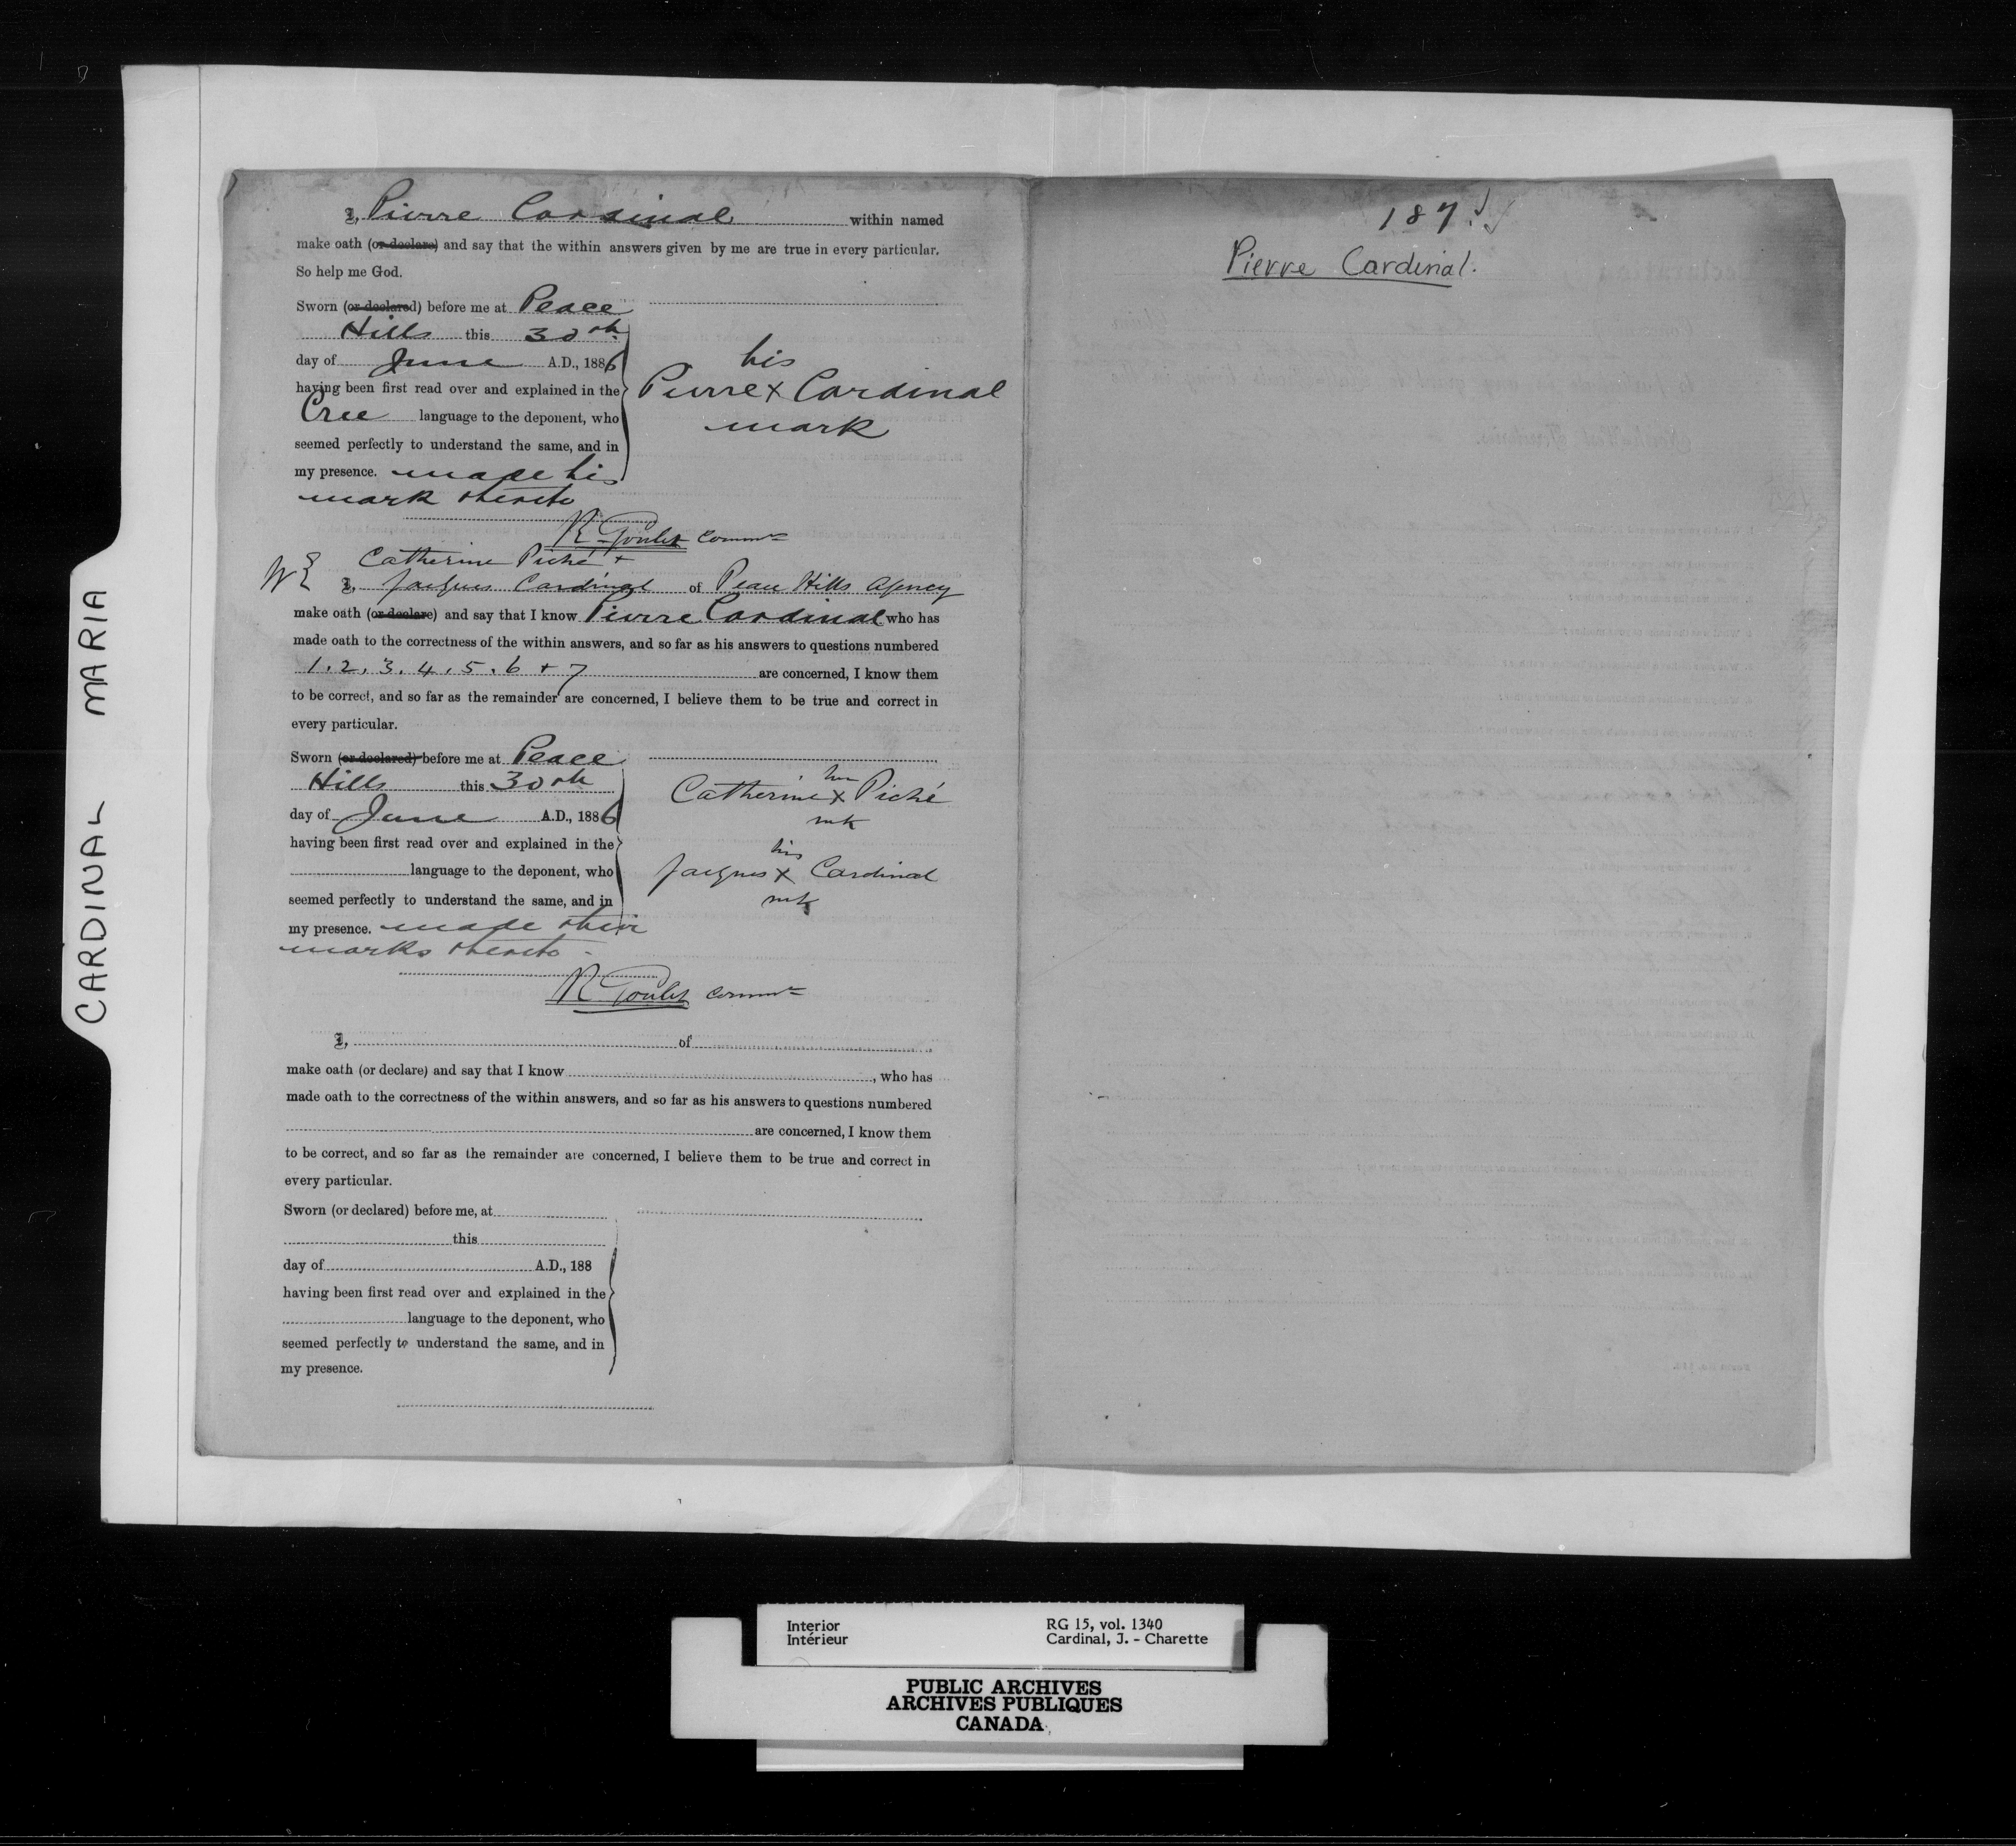 CARDINAL MARIA
I, Pierre Cardinal within named
make oath (or declare) and say that the within answers given by me are true in every particular.
So help me God.
Sworn (or declared) before me at Peace
Hills this 30th
day of June A.D., 1886
having been first read over and explained in the
Cree language to the deponent, who
seemed perfectly to understand the same, and in
my presence. made his
mark thereto
his
Pierre X Cardinal
mark
R Goulet Commr
Catherine Piché +
WE I, Jacques Cardinal of Peace Hills Agency
make oath (or declare) and say that I know Pierre Cardinal who has
made oath to the correctness of the within answers, and so far as his answers to questions numbered
1. 2. 3. 4. 5. 6 + 7 are concerned, I know them
to be correct, and so far as the remainder are concerned, I believe them to be true and correct in
every particular.
Sworn (or declared) before me at Peace
Hills this 30th
day of June A.D., 1886
having been first read over and explained in the
language to the deponent, who
seemed perfectly to understand the same, and in
my presence. made their
marks thereto -
her
Catherine X Piché
mk
his
Jacques X Cardinal
mk
R Goulet Commr
I, of
make oath (or declare) and say that I know , who has
made oath to the correctness of the within answers, and so far as his answers to questions numbered
are concerned, I know them
to be correct, and so far as the remainder are concerned, I believe them to be true and correct in
every particular.
Sworn (or declared) before me, at
this
day of A.D., 188
having been first read over and explained in the
language to the deponent, who
seemed perfectly to understand the same, and in
my presence.
187.
Pierre Cardinal.
Interior RG 15, vol. 1340
Intérieur Cardinal, J. - Charette
PUBLIC ARCHIVES
ARCHIVES PUBLIQUES
CANADA